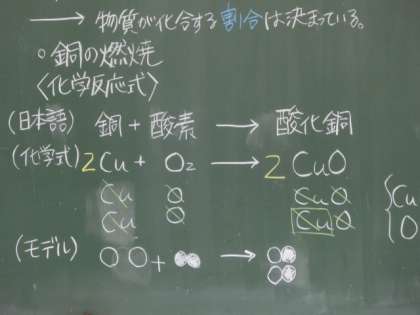 → 物質が化合する割合は決まっている。
○銅の燃焼
〈化学反応式〉
(日本語) 銅 + 酸素 → 酸化銅
(化学式) 2Cu + O₂ → 2CuO
Cu O CuO
Cu O CuO
(モデル) ○○ + ●● → ○●
○●
{Cu
O